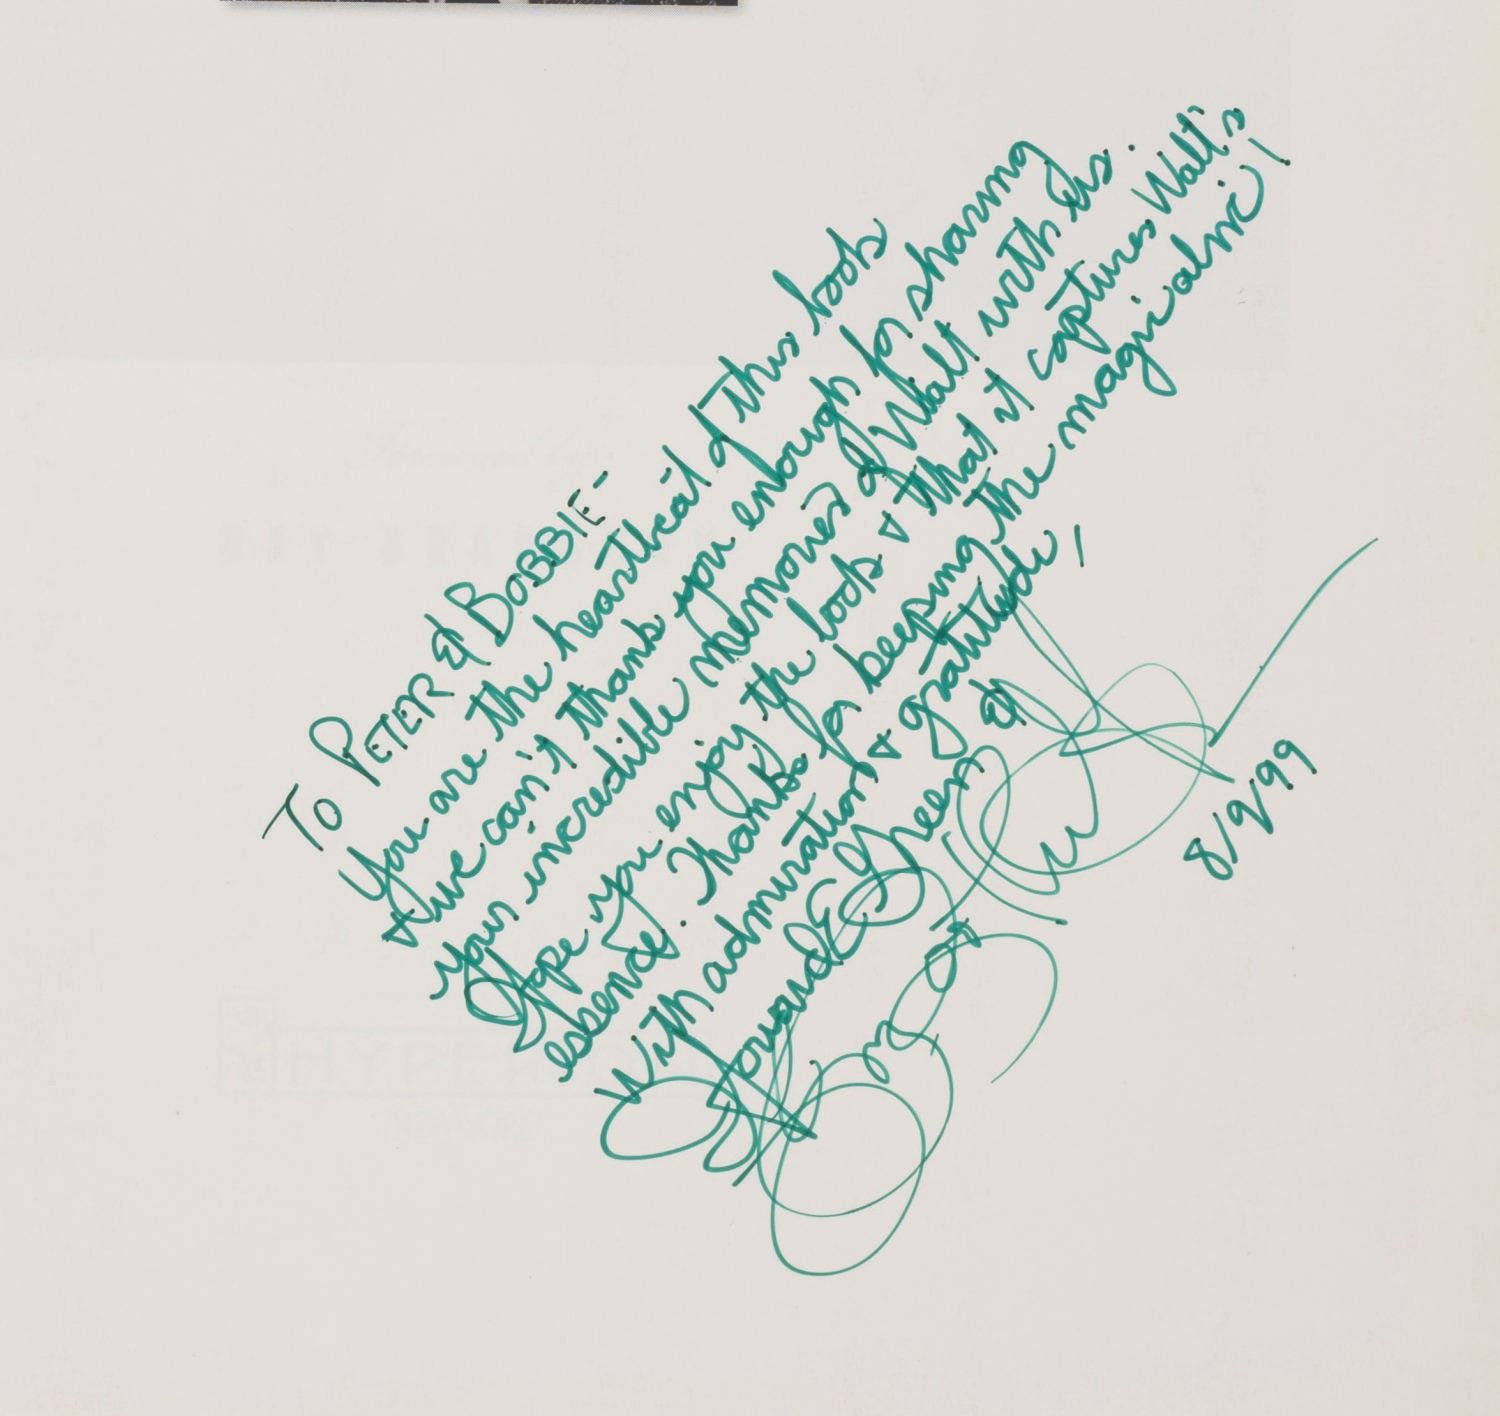 To PETER & BOBBIE-
You are the heartbeat of this book
+ we can't thank you enough for sharing
your incredible memories of Walt with us.
Hope you enjoy the book & that it captures Walt's
essence. Thanks for keeping the magic alive!
With admiration & gratitude,
Howard E Green &
8/9/99
HYPER